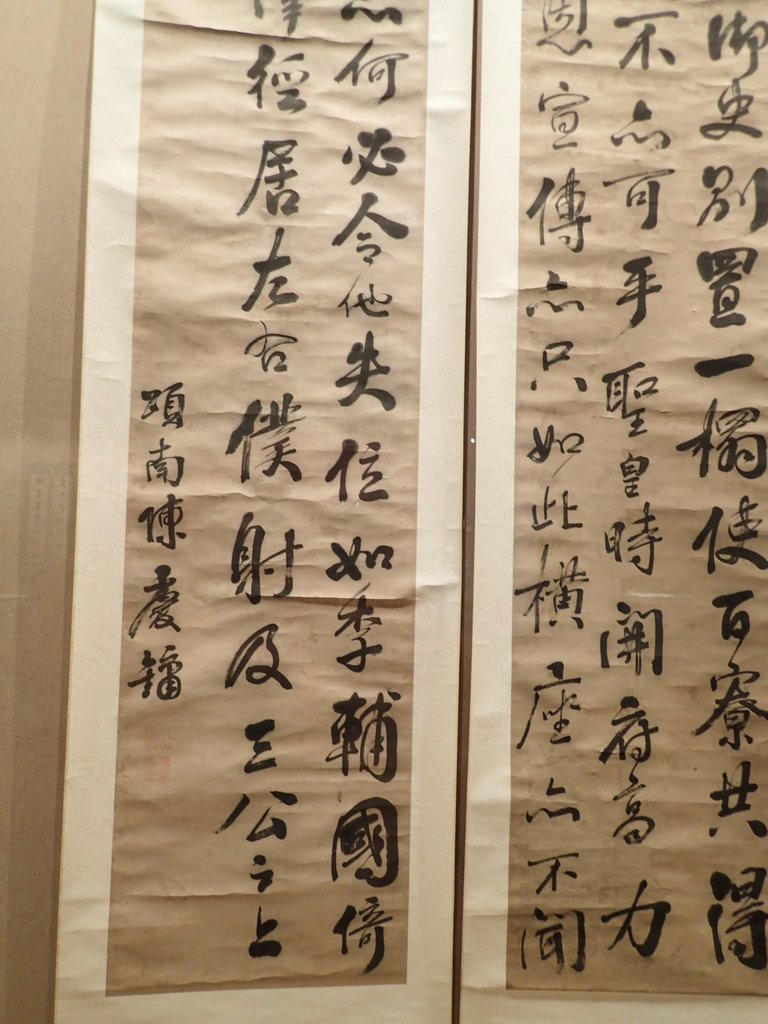 御史別置一榻使百寮共得
不亦可乎聖皇時開府高力
恩宣傳亦只如此橫座亦不聞
何必令他失位如李輔國倚
徑居左右僕射及三公之上
頌南陳慶鏞